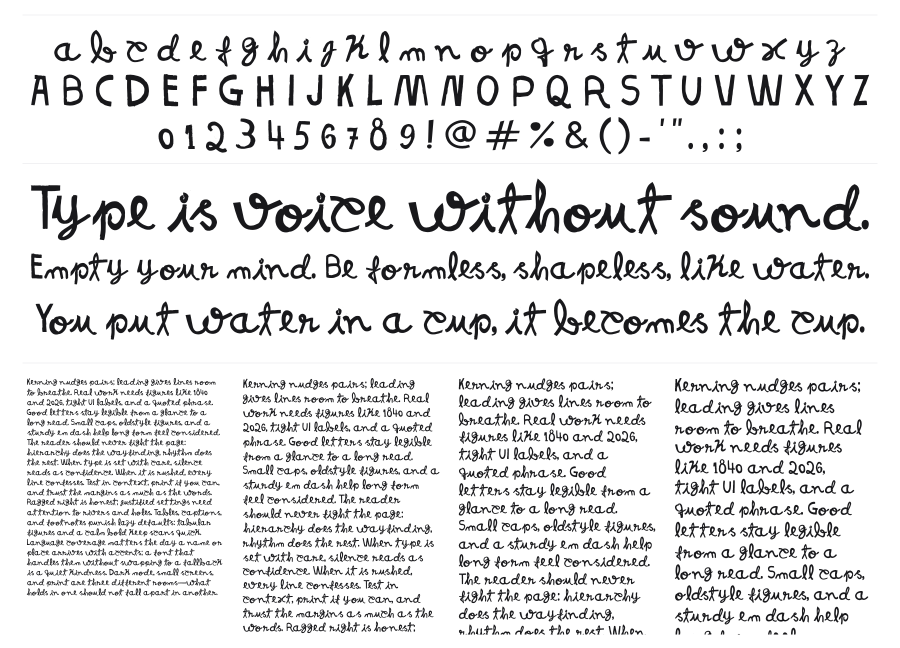 a b c d e f g h i j k l m n o p q r s t u v w x y z
A B C D E F G H I J K L M N O P Q R S T U V W X Y Z
0 1 2 3 4 5 6 7 8 9 ! @ # % & ( ) - ' " . , : ;
Type is voice without sound.
Empty your mind. Be formless, shapeless, like water.
You put water in a cup, it becomes the cup.
Kerning nudges pairs; leading gives lines room
to breathe. Real work needs figures like 1840
and 2026, tight UI labels, and a quoted phrase.
Good letters stay legible from a glance to a
long read. Small caps, oldstyle figures, and a
sturdy em dash help long form feel considered.
The reader should never fight the page:
hierarchy does the wayfinding, rhythm does
the rest. When type is set with care, silence
reads as confidence. When it is rushed, every
line confesses. Test in context, print if you can,
and trust the margins as much as the words.
Ragged right is honest; justified settings need
attention to rivers and holes. Tables, captions,
and footnotes punish lazy defaults: tabular
figures and a calm bold keep scans quick.
Language coverage matters the day a name or
place arrives with accents; a font that
handles them without swapping to a fallback
is a quiet kindness. Dark mode, small screens,
and print are three different rooms—what
holds in one should not fall apart in another.
Kerning nudges pairs; leading
gives lines room to breathe. Real
work needs figures like 1840 and
2026, tight UI labels, and a quoted
phrase. Good letters stay legible
from a glance to a long read.
Small caps, oldstyle figures, and a
sturdy em dash help long form
feel considered. The reader
should never fight the page:
hierarchy does the wayfinding,
rhythm does the rest. When type is
set with care, silence reads as
confidence. When it is rushed,
every line confesses. Test in
context, print if you can, and
trust the margins as much as the
words. Ragged right is honest;
Kerning nudges pairs;
leading gives lines room to
breathe. Real work needs
figures like 1840 and 2026,
tight UI labels, and a
quoted phrase. Good
letters stay legible from a
glance to a long read.
Small caps, oldstyle figures,
and a sturdy em dash help
long form feel considered.
The reader should never
fight the page: hierarchy
does the wayfinding,
rhythm does the rest. When
Kerning nudges pairs;
leading gives lines
room to breathe. Real
work needs figures
like 1840 and 2026,
tight UI labels, and a
quoted phrase. Good
letters stay legible
from a glance to a
long read. Small caps,
oldstyle figures, and a
sturdy em dash help